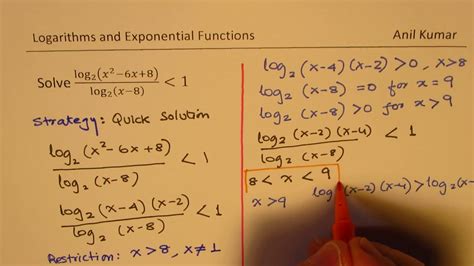 Logarithms and Exponential Functions
Anil Kumar
Solve log₂(x²−6x+8)/log₂(x−8) < 1
Strategy: Quick Solution
log₂ (x²-6x+8)/log₂ (x-8) < 1
log₂ (x-4)(x-2)/log₂ (x-8) < 1
Restriction: x>8, x≠1
log₂ (x-4)(x-2) >0, x>8
log₂ (x-8) =0 for x=9
log₂ (x-8) >0 for x>9
log₂ (x-2)(x-4)/log₂ (x-8) < 1
8 < x < 9
x>9 log (x-2)(x-4) > log₂(x-